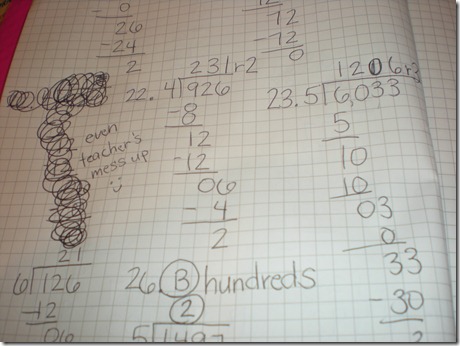 - 0
26
-24
2
12
72
-72
0
231r2
22. 4)926
-8
12
-12
06
- 4
2
1206r3
23. 5)6,033
5
10
10
03
0
33
-30
3
even
teacher's
mess up
:)
21
6)126
-12
06
26. B hundreds
2
5)1497